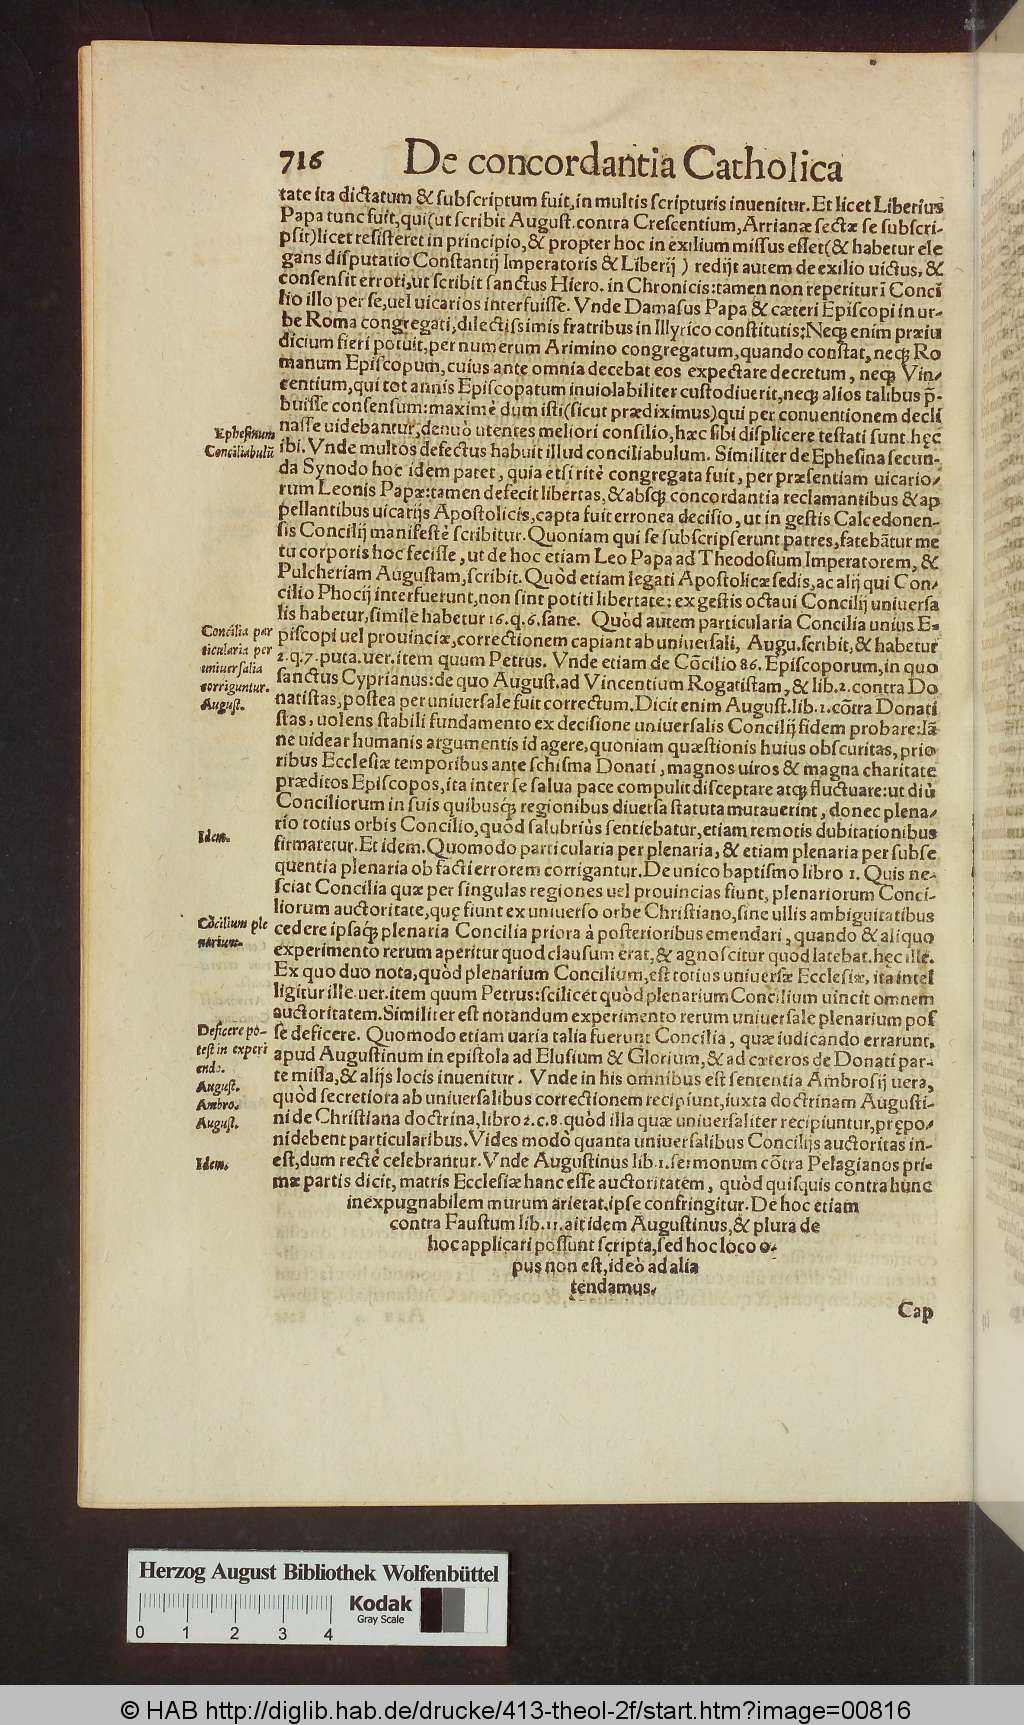 716 De concordantia Catholica
tate ita dictatum & subscriptum fuit, in multis scripturis inuenitur. Et licet Liberius
Papa tunc fuit, qui (ut scribit August. contra Crescentium, Arrianæ sectæ se subscri-
psit) licet resisteret in principio, & propter hoc in exilium missus esset (& habetur ele
gans disputatio Constantij Imperatoris & Liberij) redijt autem de exilio uictus, &
consensit errori, ut scribit sanctus Hiero. in Chronicis: tamen non reperitur ī Concī
lio illo per se, uel uicarios interfuisse. Vnde Damasus Papa & cæteri Episcopi in ur-
be Roma congregati, dilectissimis fratribus in Illyrico constitutis: Neqꝫ enim præiu
dicium fieri potuit, per numerum Arimino congregatum, quando constat, neqꝫ Ro
manum Episcopum, cuius ante omnia decebat eos expectare decretum, neqꝫ Vin-
centium, qui tot annis Episcopatum inuiolabiliter custodiuerit, neqꝫ alios talibus p̄-
buisse consensum: maximè dum isti (sicut prædiximus) qui per conuentionem declī
nasse uidebantur, denuò utentes meliori consilio, hæc sibi displicere testati sunt hęc
ibi. Vnde multos defectus habuit illud conciliabulum. Similiter de Ephesina secun-
da Synodo hoc idem patet, quia etsi ritè congregata fuit, per præsentiam uicario-
rum Leonis Papæ: tamen defecit libertas, & absqꝫ concordantia reclamantibus & ap
pellantibus uicarijs Apostolicis, capta fuit erronea decisio, ut in gestis Calcedonen-
sis Concilij manifestè scribitur. Quoniam qui se subscripserunt patres, fatebātur me
tu corporis hoc fecisse, ut de hoc etiam Leo Papa ad Theodosium Imperatorem, &
Pulcheriam Augustam, scribit. Quòd etiam legati Apostolicæ sedis, ac alij qui Con-
cilio Phocij interfuerunt, non sint potiti libertate: ex gestis octaui Concilij uniuersa
lis habetur, simile habetur 16. q. 6. sane. Quòd autem particularia Concilia unius E-
piscopi uel prouinciæ, correctionem capiant ab uniuersali, Augu. scribit, & habetur
2. q. 7. puta. uer. item quum Petrus. Vnde etiam de Cōcilio 86. Episcoporum, in quo
sanctus Cyprianus: de quo August. ad Vincentium Rogatistam, & lib. 2. contra Do
natistas, postea per uniuersale fuit correctum. Dicit enim August. lib. 1. cōtra Donati
stas, uolens stabili fundamento ex decisione uniuersalis Concilij fidem probare: Iā
ne uidear humanis argumentis id agere, quoniam quæstionis huius obscuritas, prio
ribus Ecclesiæ temporibus ante schisma Donati, magnos uiros & magna charitate
præditos Episcopos, ita inter se salua pace compulit disceptare atqꝫ fluctuare: ut diù
Conciliorum in suis quibusqꝫ regionibus diuersa statuta mutauerint, donec plena-
rio totius orbis Concilio, quòd salubriùs sentiebatur, etiam remotis dubitationibus
firmaretur. Et idem. Quomodo particularia per plenaria, & etiam plenaria per subse
quentia plenaria ob facti errorem corrigantur. De unico baptismo libro 1. Quis ne-
sciat Concilia quæ per singulas regiones uel prouincias fiunt, plenariorum Conci-
liorum auctoritate, quę fiunt ex uniuerso orbe Christiano, sine ullis ambiguitatibus
cedere ipsaqꝫ plenaria Concilia priora à posterioribus emendari, quando & aliquo
experimento rerum aperitur quod clausum erat, & agnoscitur quod latebat. hęc ille.
Ex quo duo nota, quòd plenarium Concilium, est totius uniuersæ Ecclesiæ, ita intel
ligitur ille. uer. item quum Petrus: scilicet quòd plenarium Concilium uincit omnem
auctoritatem. Similiter est notandum experimento rerum uniuersale plenarium pos
se deficere. Quomodo etiam uaria talia fuerunt Concilia, quæ iudicando errarunt,
apud Augustinum in epistola ad Elusium & Glorium, & ad cæteros de Donati par-
te missa, & alijs locis inuenitur. Vnde in his omnibus est sententia Ambrosij uera,
quòd secretiora ab uniuersalibus correctionem recipiunt, iuxta doctrinam Augusti-
ni de Christiana doctrina, libro 2. c. 8. quòd illa quæ uniuersaliter recipiuntur, prępo-
ni debent particularibus. Vides modò quanta uniuersalibus Concilijs auctoritas in-
est, dum rectè celebrantur. Vnde Augustinus lib. 1. sermonum cōtra Pelagianos pri-
mæ partis dicit, matris Ecclesiæ hanc esse auctoritatem, quòd quisquis contra hunc
inexpugnabilem murum arietat, ipse confringitur. De hoc etiam
contra Faustum lib. 11. ait idem Augustinus, & plura de
hoc applicari possunt scripta, sed hoc loco o-
pus non est, ideò ad alia
tendamus.
Cap
Ephesinum
Conciliabulū
Concilia par
ticularia per
uniuersalia
corriguntur.
August.
Idem.
Cōcilium ple
narium.
Deficere po-
test in experi
endo.
August.
Ambro.
August.
Idem.
Herzog August Bibliothek Wolfenbüttel
Kodak
Gray Scale
0 1 2 3 4
© HAB http://diglib.hab.de/drucke/413-theol-2f/start.htm?image=00816